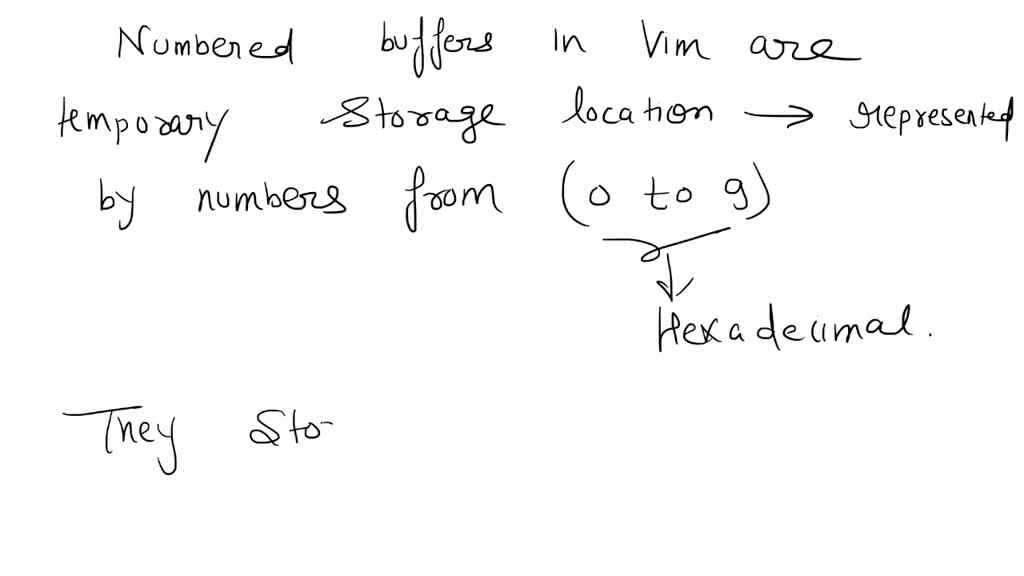 Numbered buffers in Vim are
temporary storage location → represented
by numbers from (0 to 9)
Hexadecimal.
They Sto